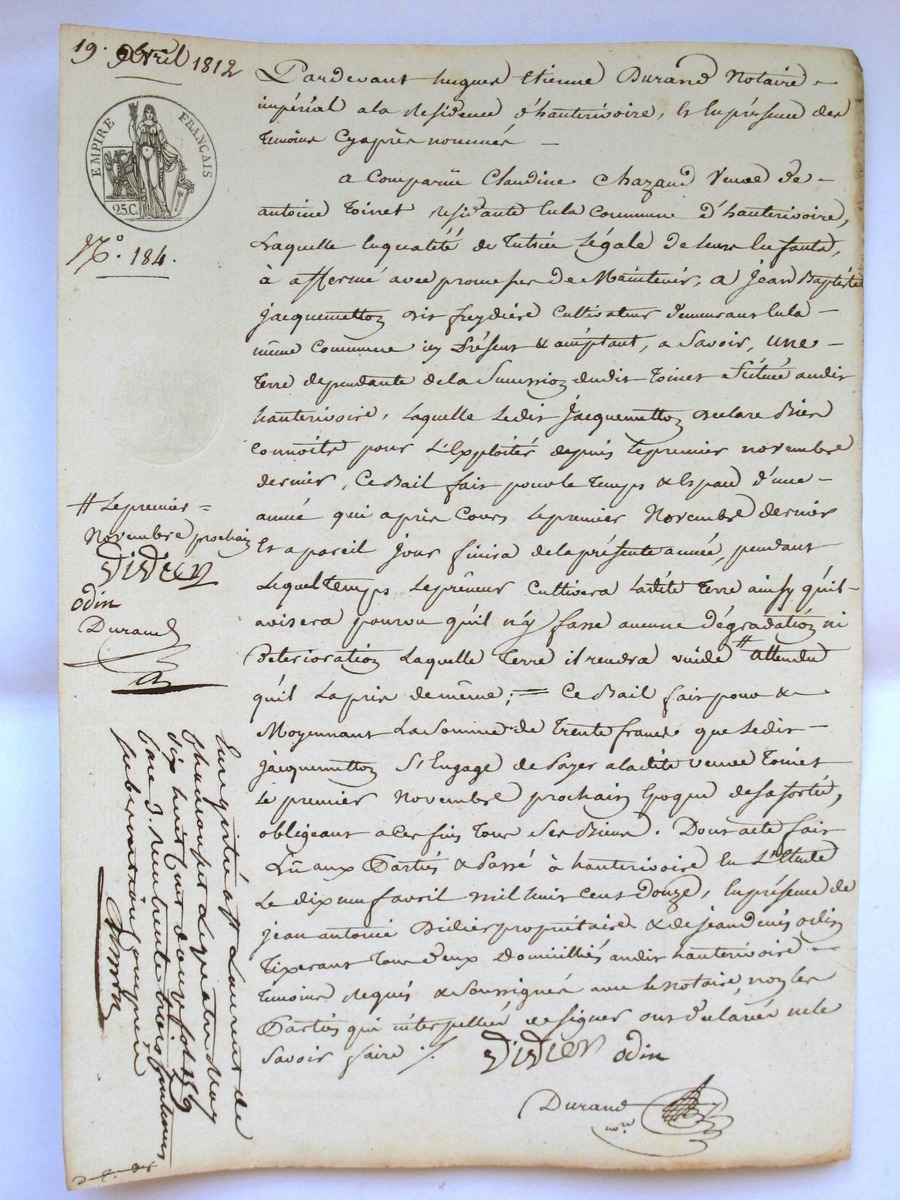 19. avril 1812
EMPIRE FRANÇAIS
25.C.
N.° 184.
Pardevant hugues Etienne Durand Notaire
impérial a la Residence d'hauterivoire, & En présence des
temoins Cyaprès nommés
a Comparüe Claudine Chazaud Veuve de
antoine Toinet residante En la Commune d'hauterivoire,
Laquelle En qualité de Tutrice Légale de leurs Enfants,
à affermé avec promesse de Maintenir, a Jean Baptiste
Jacquemetton dit freydière Cultivateur demeurant En la
même Commune icy Présent & acceptant, a Savoir, une
Terre dependante de la Succession dudit Toinet & Scituée audit
hauterivoire, Laquelle Ledit Jacquemetton declare Bien
Connoitre pour L'Exploiter depuis Le premier novembre
dernier, Ce Bail fait pour le Temps & Espace d'une
année qui a pris Cours Le premier Novembre dernier
Et a pareil Jour finira de la présente année, pendant
Lequel temps Le prêneur Cultivera Ladite Terre ainsy qu'il
avisera pourvu qu'il n'y fasse aucune dégradation ni
Deterioration Laquelle Terre il rendra vuide # attendu
qu'il La pris de même; = Ce Bail fait pour &
Moyennant La Somme de Trente francs que Ledit
Jacquemetton S'Engage de Payer a ladite veuve Toinet
Le premier Novembre prochain Epoque de sa sortie,
obligeant a Ces fins Tous Ses Biens. Dont acte fait
Lû aux Parties & Passé à hauterivoire En L'Etude
Le dix neuf avril Mil huit Cent Douze, En présence de
Jean antoine Didier propriétaire & de Jean denis odin
Tixerant Tous deux Domicilliés audit hauterivoire
temoins Requis & Soussignés avec le Notaire, non les
Parties qui interpellées de signer ont déclarées ne le
Savoir faire ./.
Didier odin
Durand
nore
# Le premier
Novembre prochain
Didier
odin
Durand
Enregistré à St Laurent de
Chamousset Le quatre May
Mil huit Cent douze fol 159